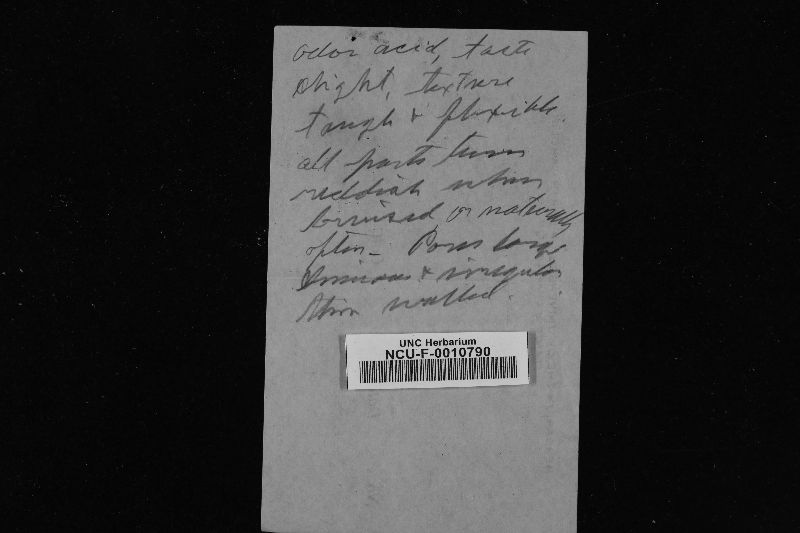 odor acid, taste
slight, texture
tough & flexible.
all parts turn
reddish when
bruised or naturally
often - Pores large
sinuous & irregular
thin walled.
UNC Herbarium
NCU-F-0010790